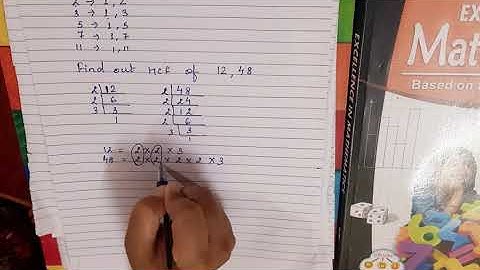 2 → 1, 2
3 → 1, 3
5 → 1, 5
7 → 1, 7
11 → 1, 11
Find out HCF of 12, 48
2 12
2 6
3 3
1
2 48
2 24
2 12
2 6
3 3
1
12 = 2 × 2 × 3
48 = 2 × 2 × 2 × 2 × 3
EXCELLENCE IN MATHEMATICS
EX
Mat
Based on